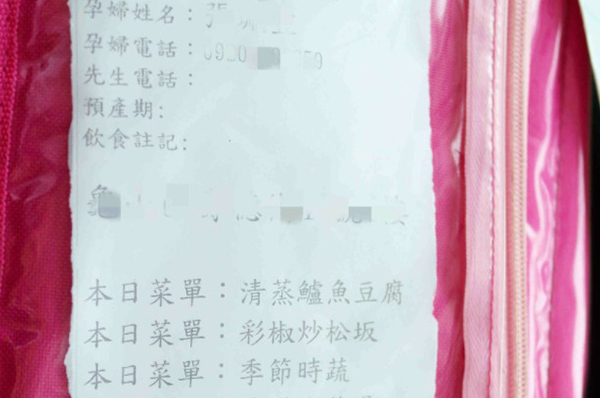 孕婦姓名：張
孕婦電話：0920
先生電話：
預產期：
飲食註記：
本日菜單：清蒸鱸魚豆腐
本日菜單：彩椒炒松坂
本日菜單：季節時蔬